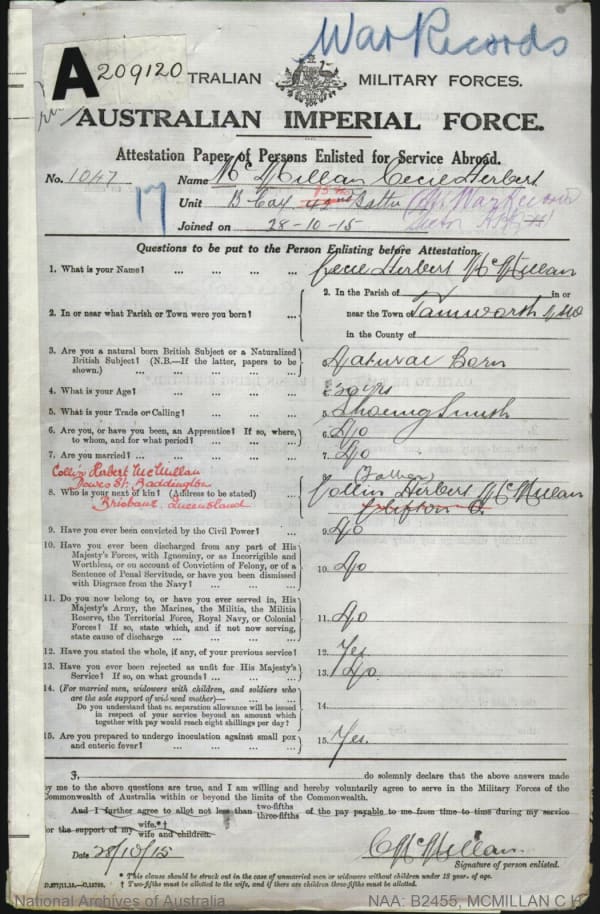 War Records
A 209120
TRALIAN MILITARY FORCES.
AUSTRALIAN IMPERIAL FORCE.
Attestation Paper of Persons Enlisted for Service Abroad.
No. 1047 Name McMillan Cecil Herbert
17 Unit B Coy. 42nd Battn
Joined on 28-10-15
Questions to be put to the Person Enlisting before Attestation.
1. What is your Name? ... ... ... ... Cecil Herbert McMillan
2. In or near what Parish or Town were you born? ... 2. In the Parish of in or
near the Town of Tamworth NSW
in the County of
3. Are you a natural born British Subject or a Naturalized
British Subject? (N.B.—If the latter, papers to be
shown.) ... ... ... ... 3. Natural Born
4. What is your Age? ... ... ... ... 4. yrs
5. What is your Trade or Calling? ... ... ... 5. Shoeing Smith
6. Are you, or have you been, an Apprentice? If so, where,
to whom, and for what period? ... ... ... 6. No
7. Are you married? ... ... ... ... 7. No
Collin Herbert McMillan
Dowes St. Paddington
Brisbane. Queensland
8. Who is your next of kin? (Address to be stated) 8. Father
Collin Herbert McMillan
Clifton Q.
9. Have you ever been convicted by the Civil Power? ... 9. No
10. Have you ever been discharged from any part of His
Majesty's Forces, with Ignominy, or as Incorrigible and
Worthless, or on account of Conviction of Felony, or of a
Sentence of Penal Servitude, or have you been dismissed
with Disgrace from the Navy? ... ... ... 10. No
11. Do you now belong to, or have you ever served in, His
Majesty's Army, the Marines, the Militia, the Militia
Reserve, the Territorial Force, Royal Navy, or Colonial
Forces? If so, state which, and if not now serving,
state cause of discharge ... ... ... 11. No
12. Have you stated the whole, if any, of your previous service? 12. Yes
13. Have you ever been rejected as unfit for His Majesty's
Service? If so, on what grounds? ... ... 13. No.
14. (For married men, widowers with children, and soldiers who
are the sole support of widowed mother)—
Do you understand that no separation allowance will be issued
in respect of your service beyond an amount which
together with pay would reach eight shillings per day? 14.
15. Are you prepared to undergo inoculation against small pox
and enteric fever? ... ... ... ... 15. Yes.
I, do solemnly declare that the above answers made
by me to the above questions are true, and I am willing and hereby voluntarily agree to serve in the Military Forces of the
Commonwealth of Australia within or beyond the limits of the Commonwealth.
And I further agree to allot not less than two-fifths three-fifths of the pay payable to me from time to time during my service
for the support of my wife.*† wife and children.
Date 28/10/15 C McMillan
Signature of person enlisted.
* This clause should be struck out in the case of unmarried men or widowers without children under 18 years of age.
† Two-fifths must be allotted to the wife, and if there are children three-fifths must be allotted.
National Archives of Australia NAA: B2455, MCMILLAN C H